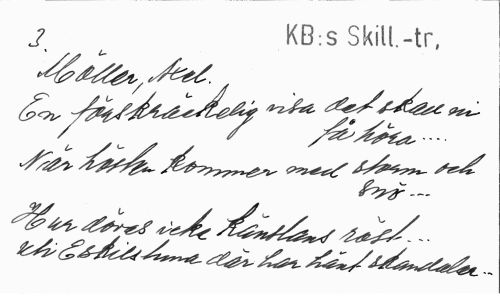 3.
KB:s Skill.-tr,
Möller, Axel.
En förskräckelig visa det skall ni
få höra....
När hösten kommer med storm och
snö...
Hur döves icke känslans röst...
uti Eskilstuna där har hänt skandaler..